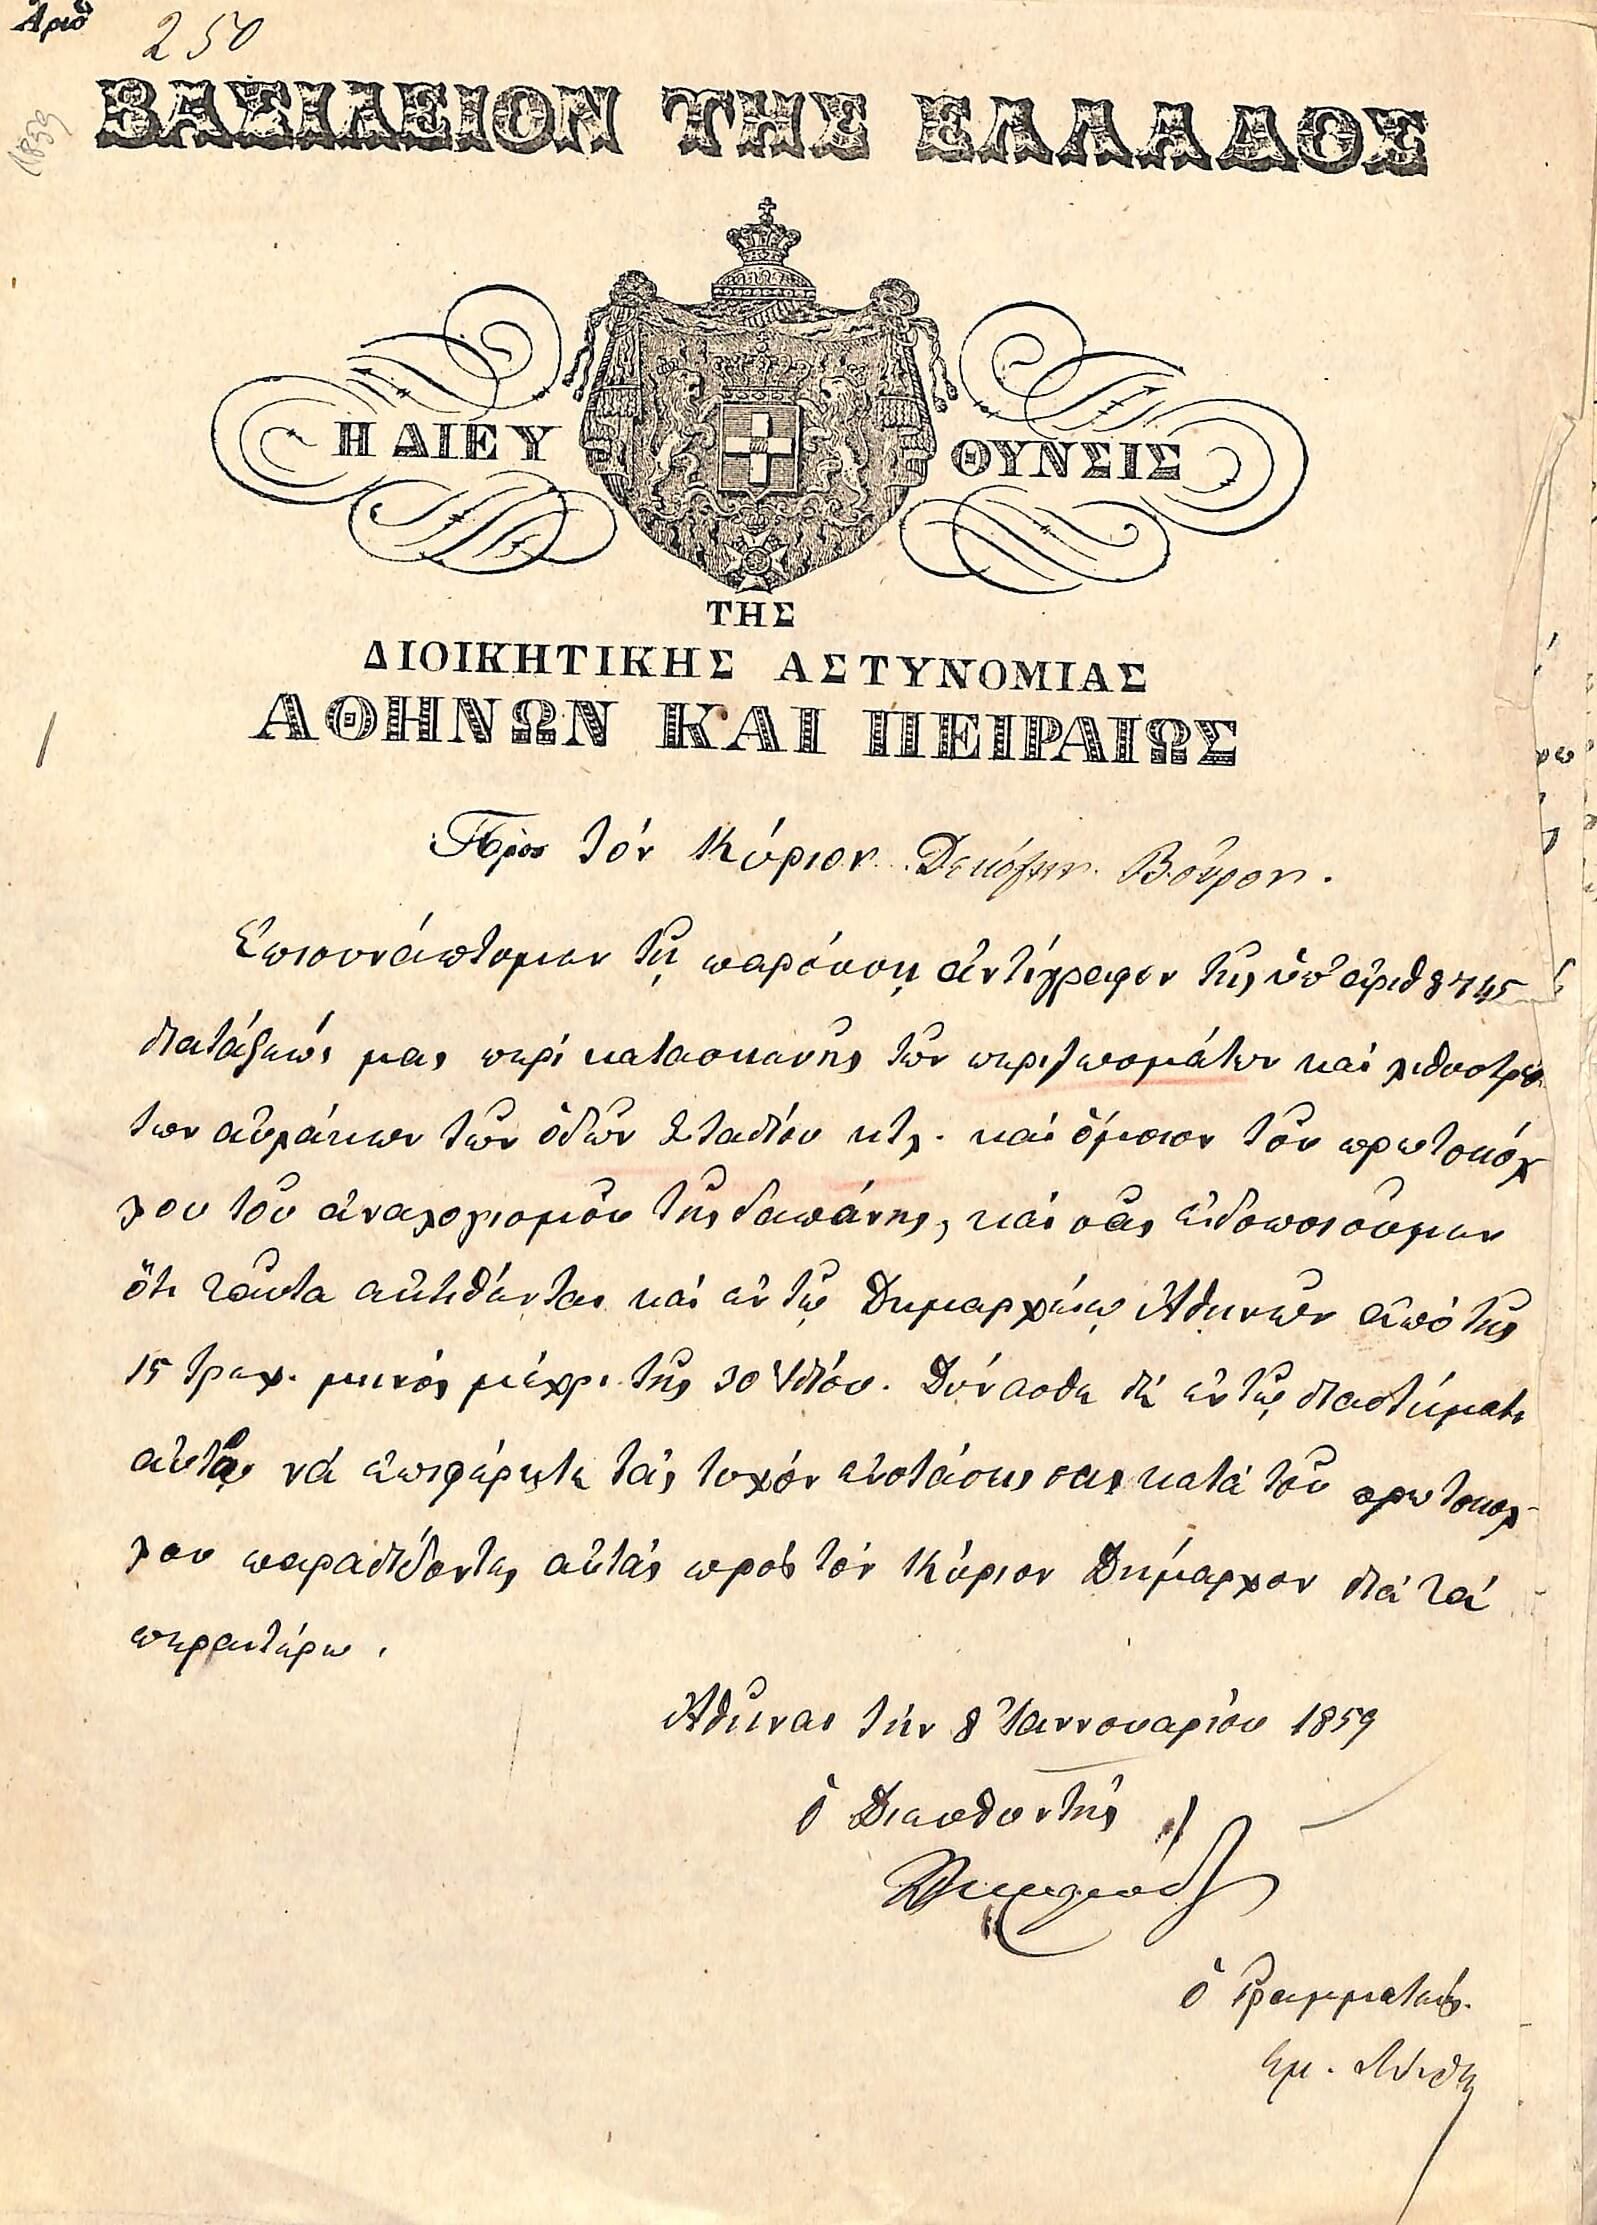 Ἀριθ
250
1859
ΒΑΣΙΛΕΙΟΝ ΤΗΣ ΕΛΛΑΔΟΣ
Η ΔΙΕΥΘΥΝΣΙΣ
ΤΗΣ
ΔΙΟΙΚΗΤΙΚΗΣ ΑΣΤΥΝΟΜΙΑΣ
ΑΘΗΝΩΝ ΚΑΙ ΠΕΙΡΑΙΩΣ
Πρὸς τὸν Κύριον Δεκόζην Βοῦρον.
Ἐπισυνάπτομεν τῇ παρούσῃ ἀντίγραφον τῆς ὑπ' ἀριθ 8745
διατάξεώς μας περὶ κατασκευῆς τῶν περιζωσμάτων καὶ λιθοστρώ
των αὐλάκων τῶν ὁδῶν Σταδίου κτλ. καὶ ὅμοιον τοῦ πρωτοκόλ
λου τοῦ ἀναλογισμοῦ τῆς δαπάνης, καὶ σᾶς εἰδοποιοῦμεν
ὅτι ταῦτα ἐκτίθενται καὶ ἐν τῷ Δημαρχείῳ Ἀθηνῶν ἀπὸ τῆς
15 τρεχ. μηνὸς μέχρι τῆς 30 ἰδίου. Δύνασθε δὲ ἐν τῷ διαστήματι
αὐτῷ νὰ ἐπιφέρητε τὰς τυχὸν ἐνστάσεις σας κατὰ τοῦ πρωτοκόλ
λου παραδίδοντες αὐτὰς πρὸς τὸν Κύριον Δήμαρχον διὰ τὰ
περαιτέρω.
Ἀθῆναι τὴν 8 Ἰαννουαρίου 1859
ὁ Διευθυντὴς
ὁ Γραμματεύς.
Ἐμ.